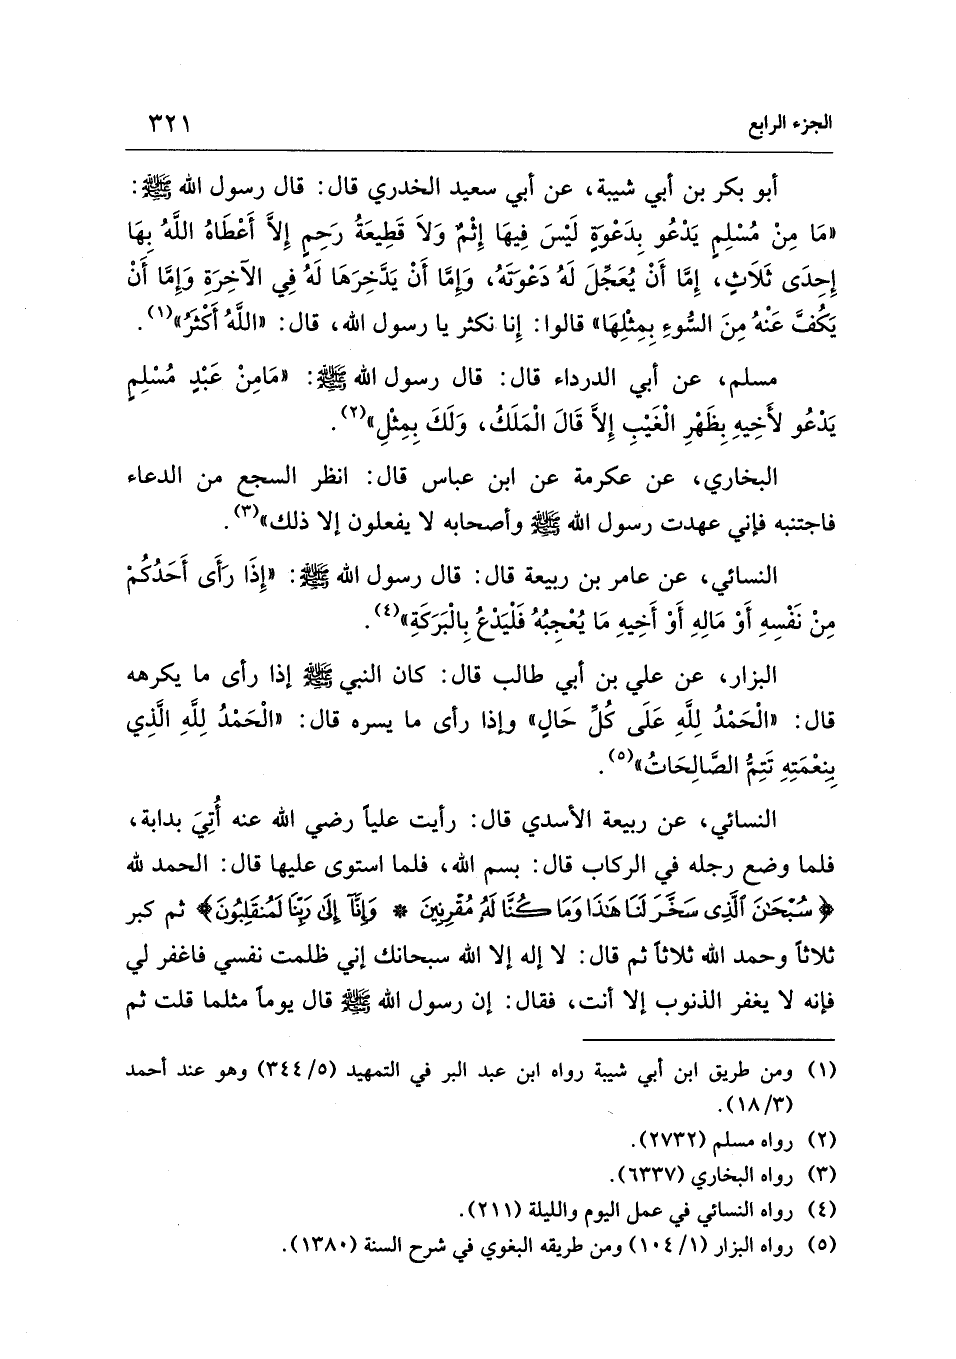 الجزء الرابع ٣٢١
أبو بكر بن أبي شيبة، عن أبي سعيد الخدري قال: قال رسول الله ﷺ:
«مَا مِنْ مُسْلِمٍ يَدْعُو بِدَعْوَةٍ لَيْسَ فِيهَا إِثْمٌ وَلاَ قَطِيعَةُ رَحِمٍ إِلاَّ أَعْطَاهُ اللَّهُ بِهَا
إِحْدَى ثَلَاثٍ، إِمَّا أَنْ يُعَجِّلَ لَهُ دَعْوَتَهُ، وَإِمَّا أَنْ يَدَّخِرَهَا لَهُ فِي الآخِرَةِ وَإِمَّا أَنْ
يَكُفَّ عَنْهُ مِنَ السُّوءِ بِمِثْلِهَا» قالوا: إنا نكثر يا رسول الله، قال: «اللَّهُ أَكْثَرُ»(١).
مسلم، عن أبي الدرداء قال: قال رسول الله ﷺ: «مَامِنْ عَبْدٍ مُسْلِمٍ
يَدْعُو لأَخِيهِ بِظَهْرِ الْغَيْبِ إِلاَّ قَالَ الْمَلَكُ، وَلَكَ بِمِثْلِ»(٢).
البخاري، عن عكرمة عن ابن عباس قال: انظر السجع من الدعاء
فاجتنبه فإني عهدت رسول الله ﷺ وأصحابه لا يفعلون إلا ذلك»(٣).
النسائي، عن عامر بن ربيعة قال: قال رسول الله ﷺ: «إِذَا رَأَى أَحَدُكُمْ
مِنْ نَفْسِهِ أَوْ مَالِهِ أَوْ أَخِيهِ مَا يُعْجِبُهُ فَلْيَدْعُ بِالْبَرَكَةِ»(٤).
البزار، عن علي بن أبي طالب قال: كان النبي ﷺ إذا رأى ما يكرهه
قال: «الْحَمْدُ لِلَّهِ عَلَى كُلِّ حَالٍ» وإذا رأى ما يسره قال: «الْحَمْدُ لِلَّهِ الَّذِي
بِنِعْمَتِهِ تَتِمُّ الصَّالِحَاتُ»(٥).
النسائي، عن ربيعة الأسدي قال: رأيت علياً رضي الله عنه أُتِيَ بدابة،
فلما وضع رجله في الركاب قال: بسم الله، فلما استوى عليها قال: الحمد لله
﴿سُبْحَٰنَ ٱلَّذِى سَخَّرَ لَنَا هَٰذَا وَمَا كُنَّا لَهُ مُقْرِنِينَ * وَإِنَّآ إِلَىٰ رَبِّنَا لَمُنقَلِبُونَ﴾ ثم كبر
ثلاثاً وحمد الله ثلاثاً ثم قال: لا إله إلا الله سبحانك إني ظلمت نفسي فاغفر لي
فإنه لا يغفر الذنوب إلا أنت، فقال: إن رسول الله ﷺ قال يوماً مثلما قلت ثم
(١) ومن طريق ابن أبي شيبة رواه ابن عبد البر في التمهيد (٣٤٤/٥) وهو عند أحمد
(١٨/٣).
(٢) رواه مسلم (٢٧٣٢).
(٣) رواه البخاري (٦٣٣٧).
(٤) رواه النسائي في عمل اليوم والليلة (٢١١).
(٥) رواه البزار (١٠٤/١) ومن طريقه البغوي في شرح السنة (١٣٨٠).